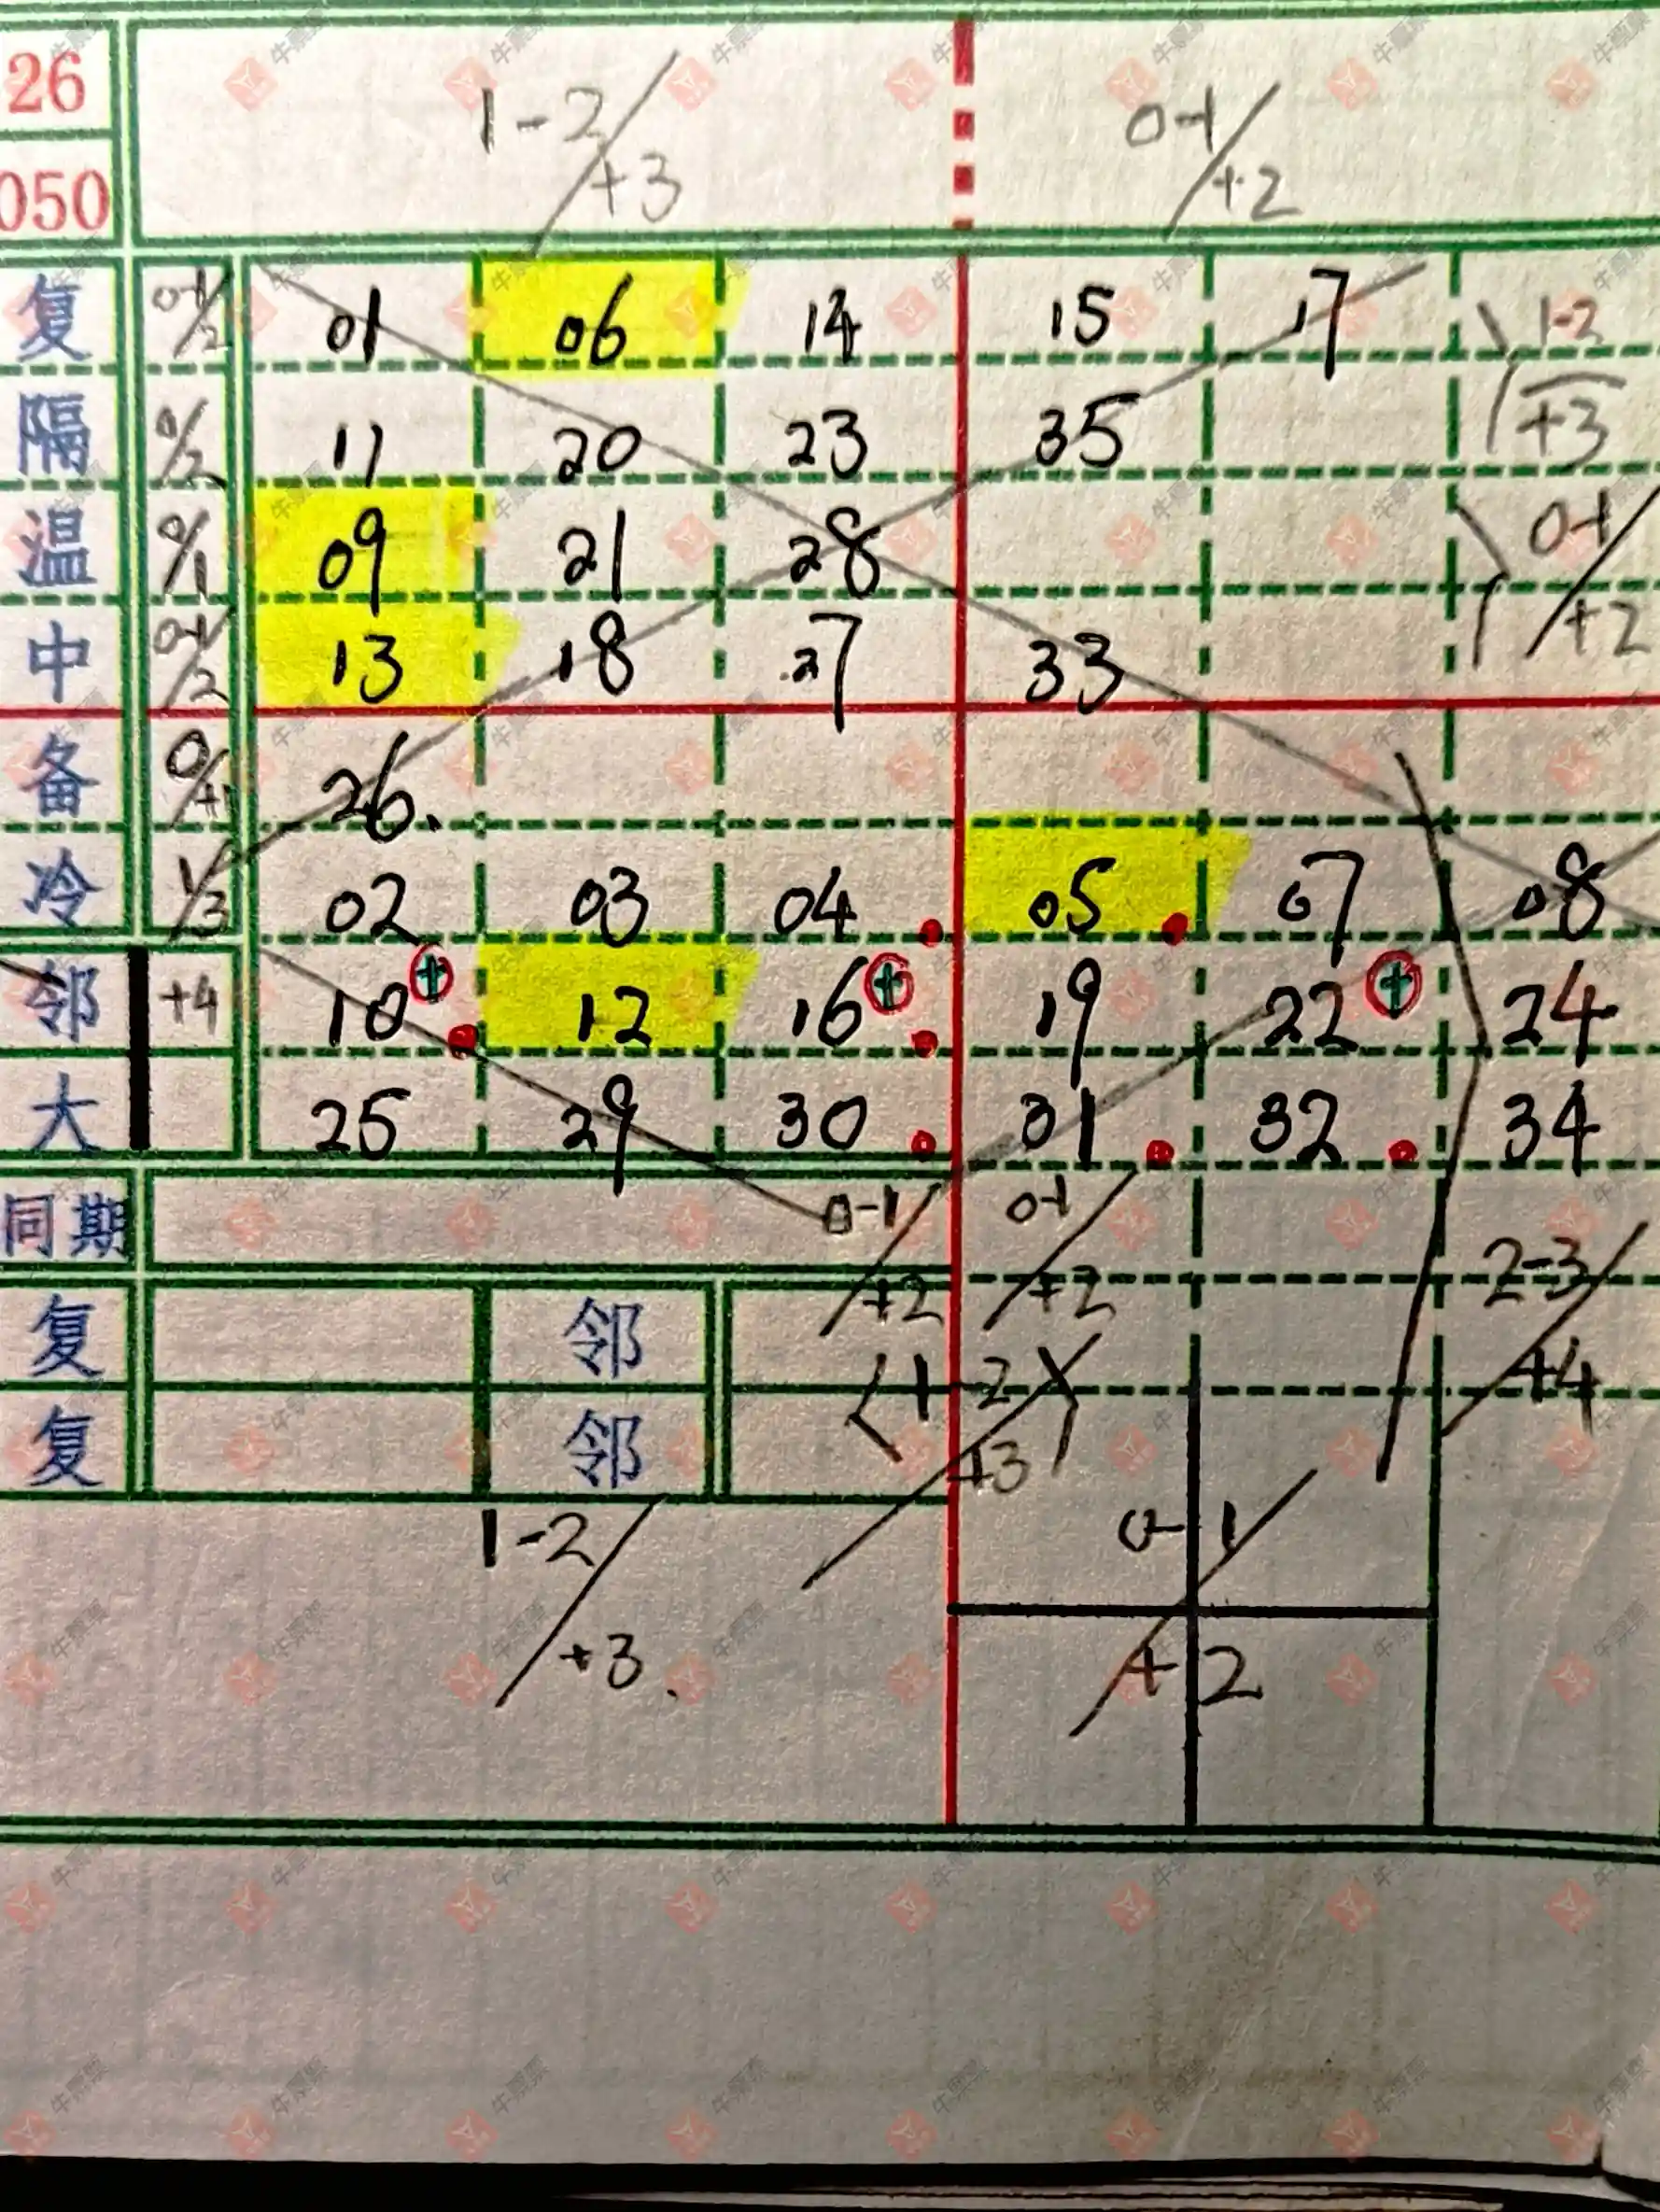 26 1-2/+3 0-1/+2
050
复 0-1/2 01 06 14 15 17 1-2/+3
隔 0/2 11 20 23 35
温 0/1 09 21 28 0-1/+2
中 0-1/2 13 18 27 33
备 0/+1 26.
冷 1/3 02 03 04 05 07 08
邻 +4 10 12 16 19 22 24
大 25 29 30 31 32 34
同期 0-1/+2 0-1/+2 2-3/+4
复 邻 (1-2/+3)
复 邻
1-2/+3. 0-1/+2
牛票票